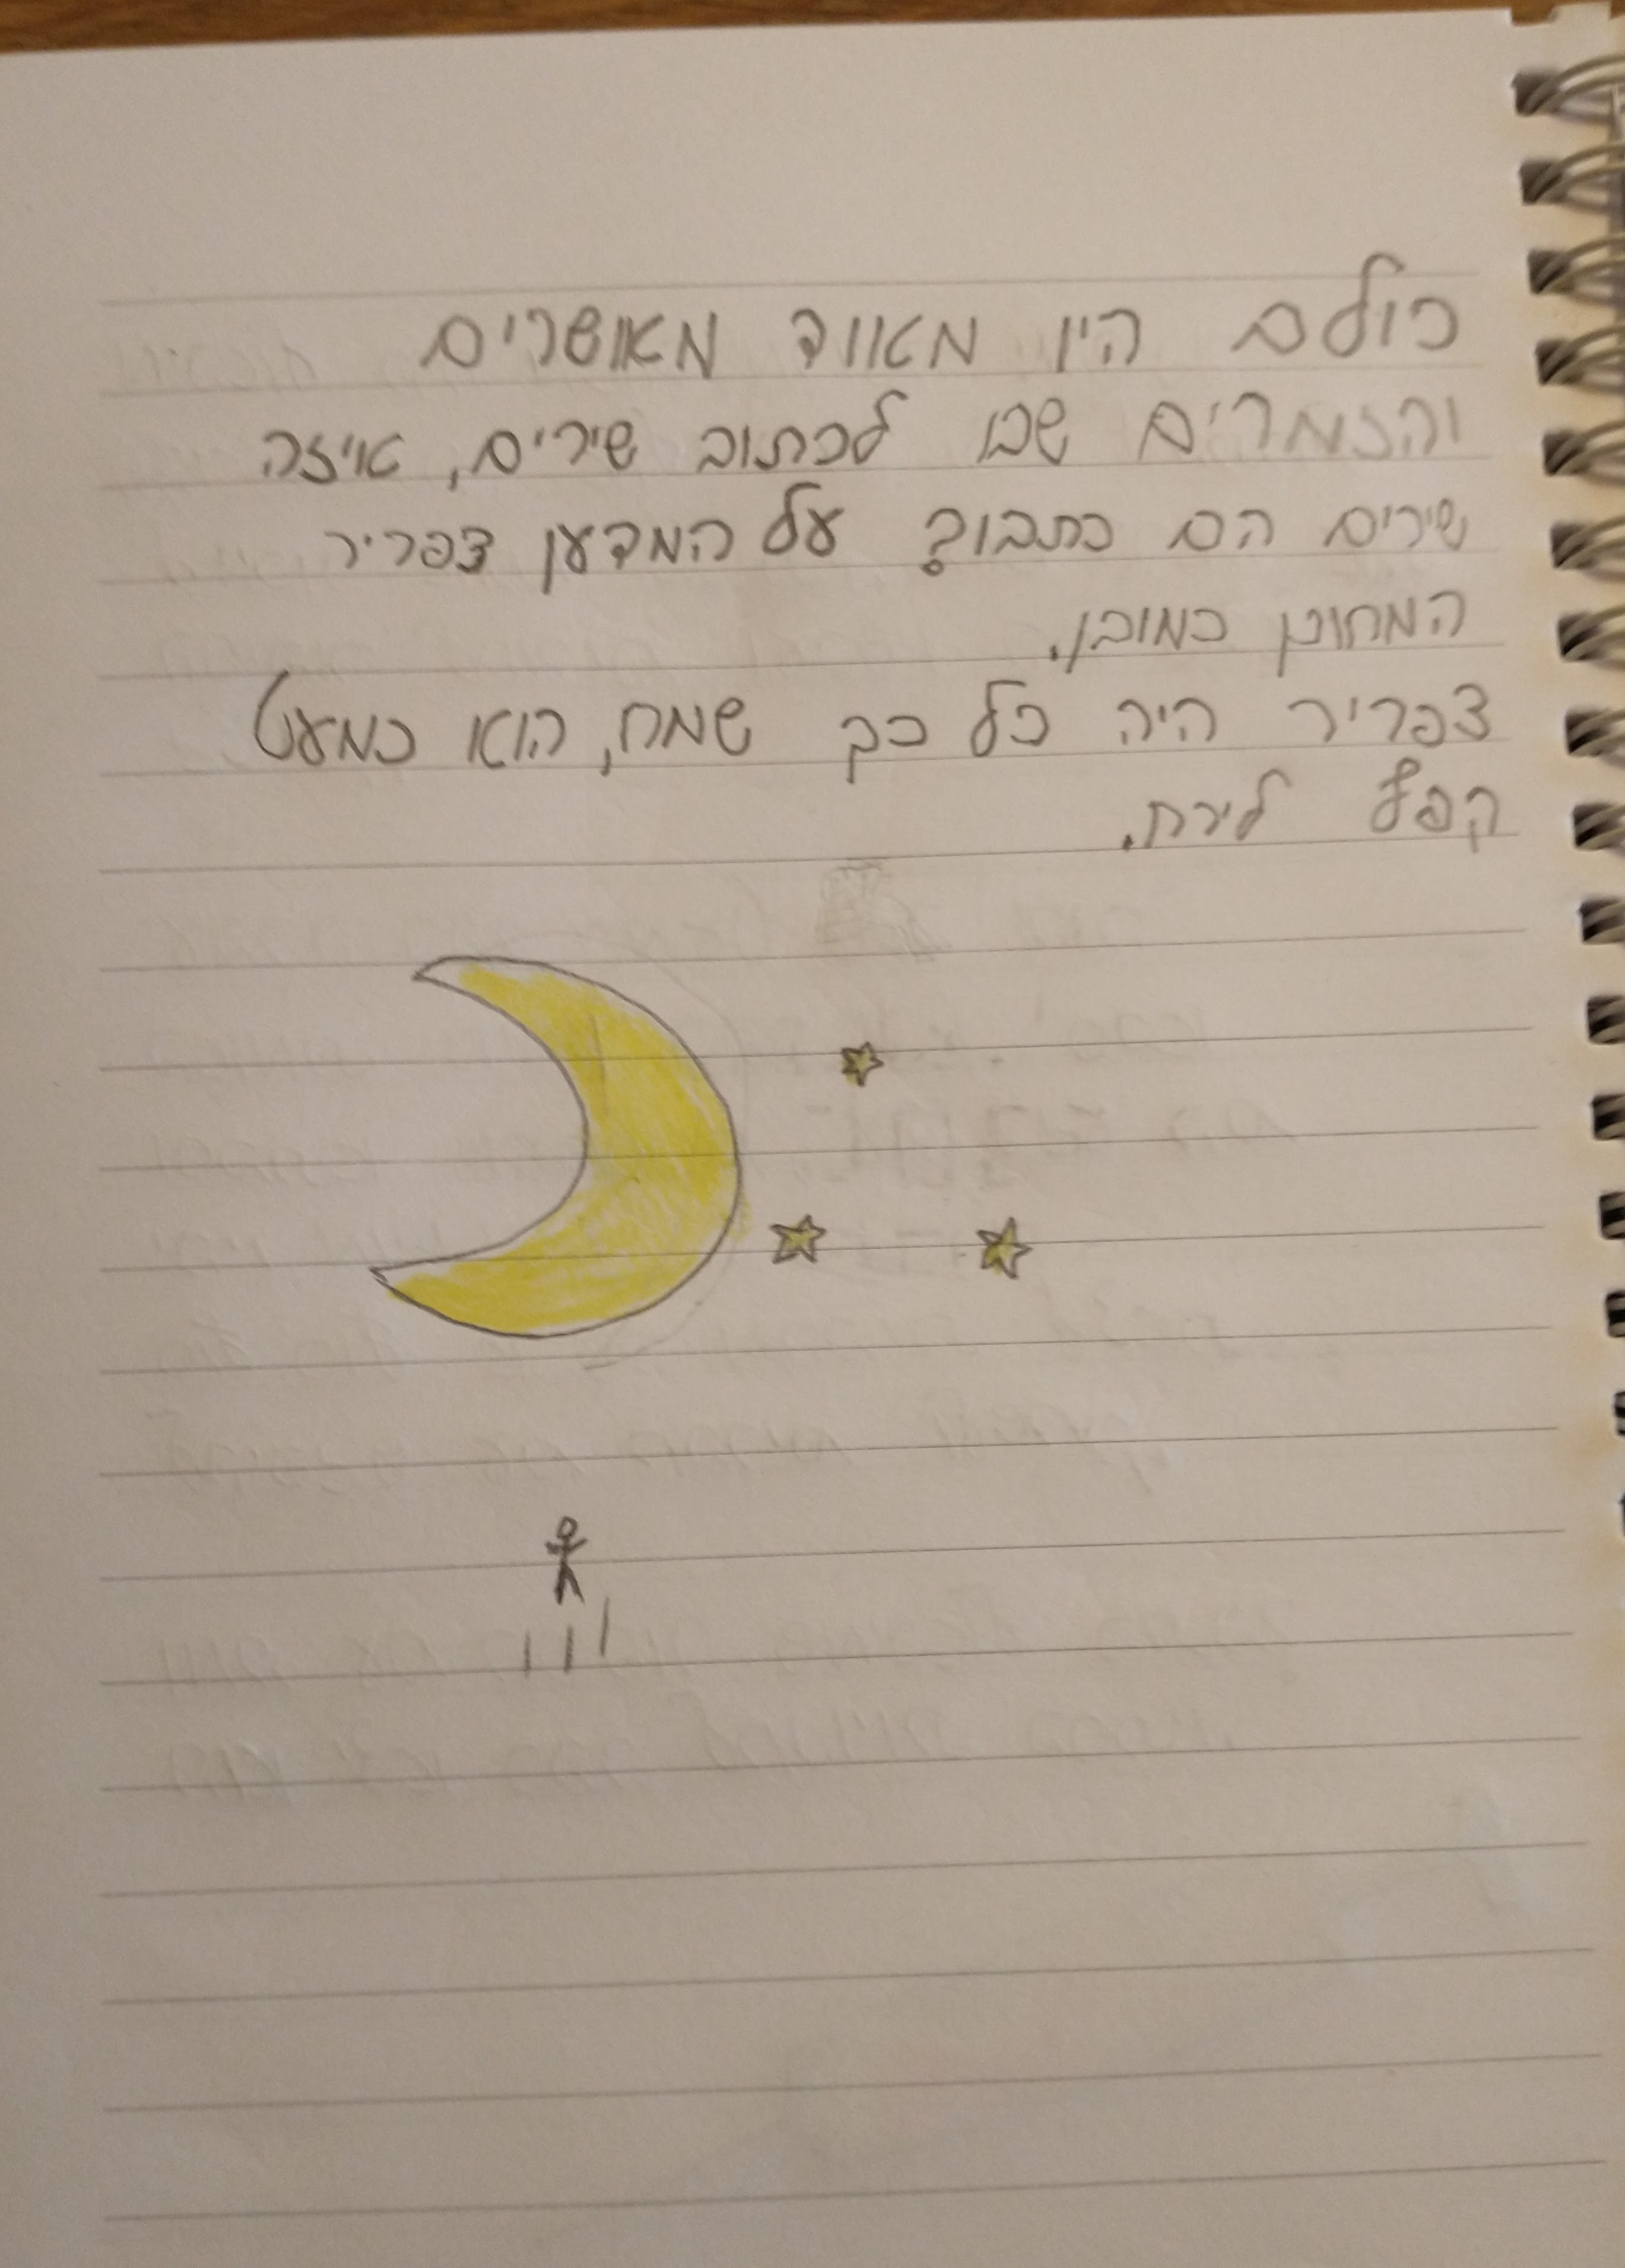 כולם היו מאווד מאושרים
והזמרים שבו לכתוב שירים, איזה
שירים הם כתבוב? על המדען צפריר
המחונן כמובן.
צפריר היה כל כך שמח, הוא כמעט
קפץ לירח.